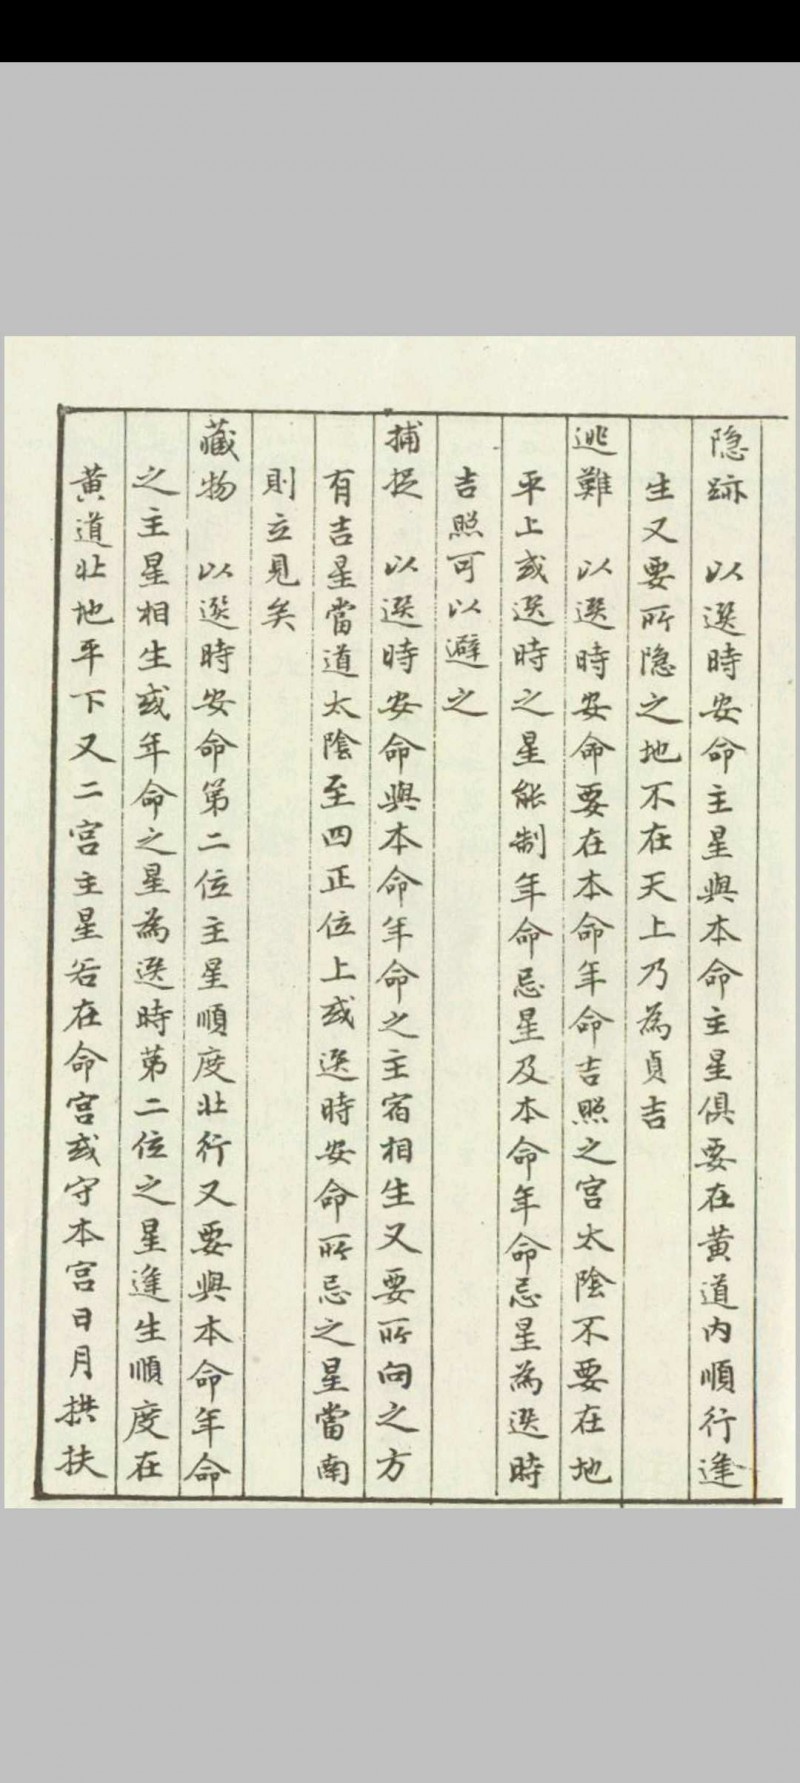 隐跡　以選時安命主星與本命主星俱要在黄道内順行逢
生又要所隐之地不在天上乃為貞吉
逃難　以選時安命要在本命年命吉照之宫太陰不要在地
平上或選時之星能制年命忌星及本命年命忌星為選時
吉照可以避之
捕捉　以選時安命與本命年命之主宿相生又要所向之方
有吉星當道太陰至四正位上或选時安命所忌之星當南
則立見矣
藏物　以選時安命第二位主星順度壯行又要與本命年命
之主星相生或年命之星為選時第二位之星逢生順度在
黄道壯地平下又二宫主星若在命宫或守本宫日月拱扶